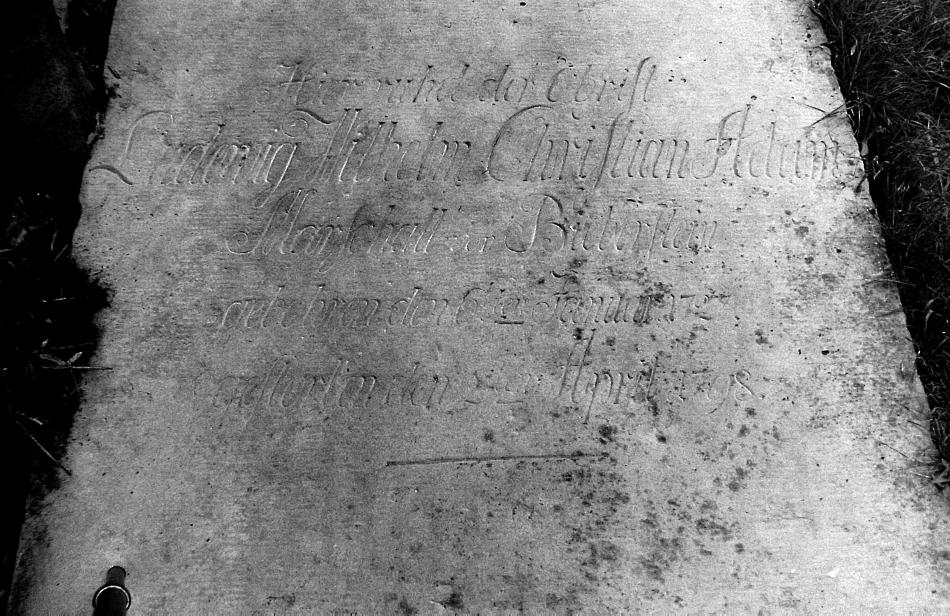 Hier ruhet der Christ
Ludewig Wilhelm Christian Adam
Marschall von Bieberstein
gebohren den 6ten Januar 1727.
gestorben den April 1798.